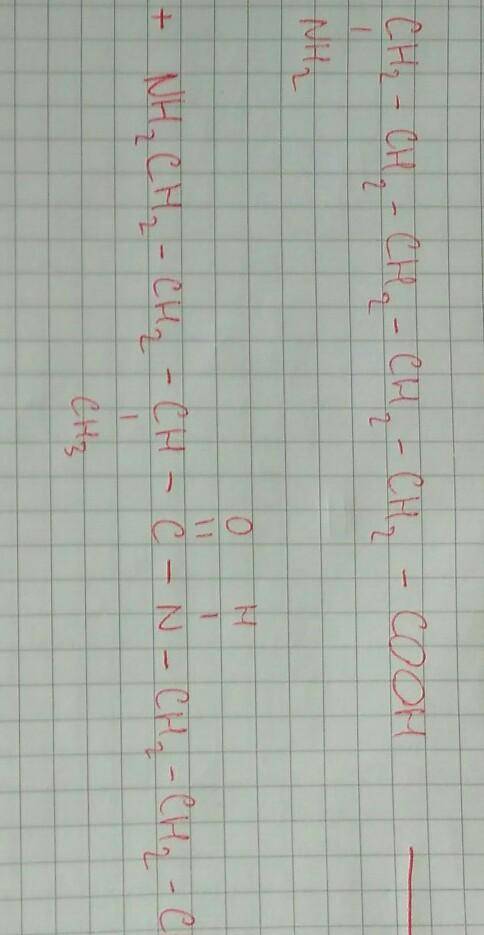 CH₂ - CH₂ - CH₂ - CH₂ - CH₂ - COOH
NH₂
O H
+ NH₂CH₂ - CH₂ - CH - C - N - CH₂ - CH₂ - C
CH₃